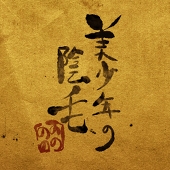 美少年の
陰毛